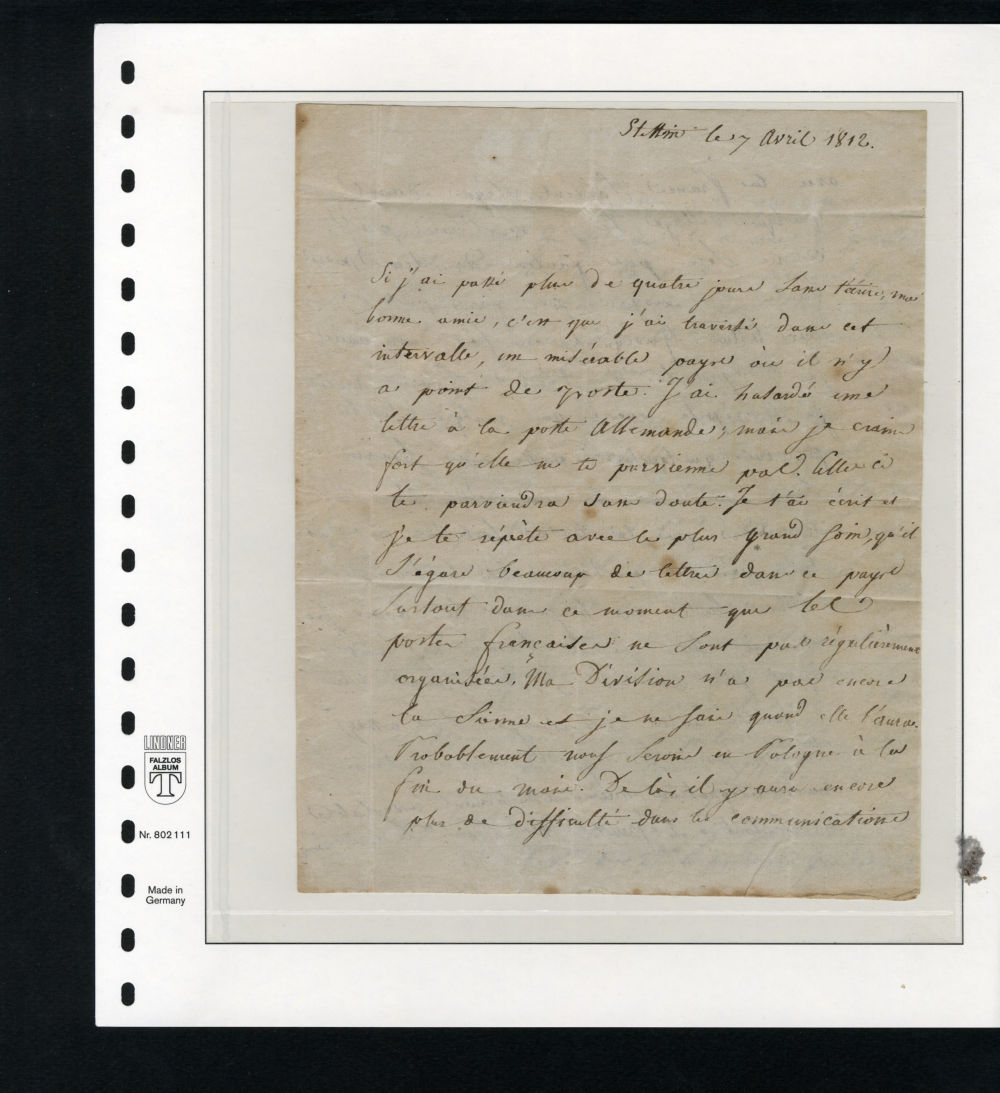 Stettin le 7 Avril 1812.
Si j'ai passé plus de quatre jours sans t'écrire, ma
bonne amie, c'est que j'ai traversé dans cet
intervalle, un misérable pays où il n'y
a point de poste. J'ai hasardé une
lettre à la poste Allemande; mais je crains
fort qu'elle ne te parvienne pas. Celle ci
te parviendra sans doute. Je t'ai écrit et
je te répète avec le plus grand soin, qu'il
s'égare beaucoup de lettres dans ce pays
surtout dans ce moment que les
postes françaises ne sont pas régulièrement
organisées. Ma Division n'a pas encore
la sienne et je ne sais quand elle l'aura.
Probablement nous serons en Pologne à la
fin du mois. De là, il y aura encore
plus de difficulté dans les communications
LINDNER
FALZLOS
ALBUM
T
Nr. 802 111
Made in
Germany